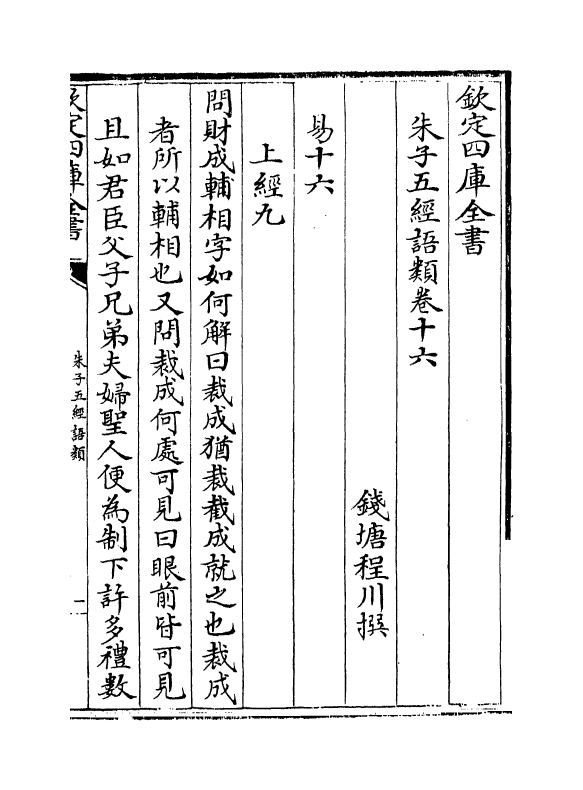 欽定四庫全書
朱子五經語類卷十六
錢塘程川撰
易十六
上經九
問財成輔相字如何解曰裁成猶裁截成就之也裁成
者所以輔相也又問裁成何處可見曰眼前皆可見
且如君臣父子兄弟夫婦聖人便為制下許多禮數
欽定四庫全書
朱子五經語類
一